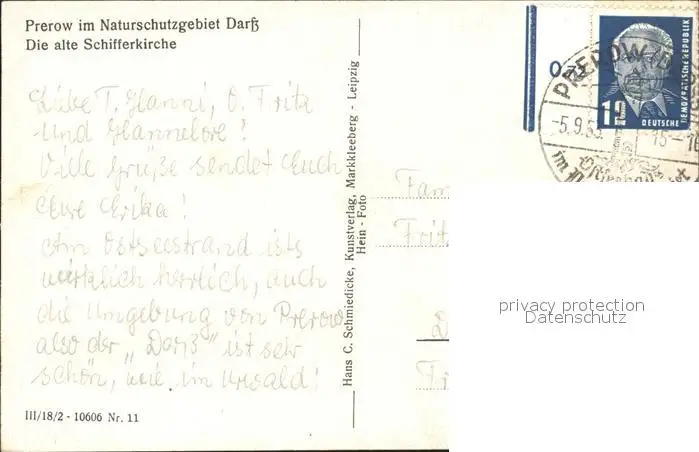 Prerow im Naturschutzgebiet Darß
Die alte Schifferkirche
Liebe T. Hanni, O. Fritz
und Hannelore!
Viele Grüße sendet Euch
Eure Erika!
Am Ostseestrand ists
wirklich herrlich, auch
die Umgebung von Prerow
also der „Darß" ist sehr
schön, wie im Urwald!
III/18/2 - 10606 Nr. 11
Hans C. Schmiedicke, Kunstverlag, Markkleeberg - Leipzig
Hein - Foto
Fam
Fritz
0,72
PREROW
-5.9.53
15-16
im
Ostseebad
12
DEUTSCHE
DEMOKRATISCHE REPUBLIK
privacy protection
Datenschutz